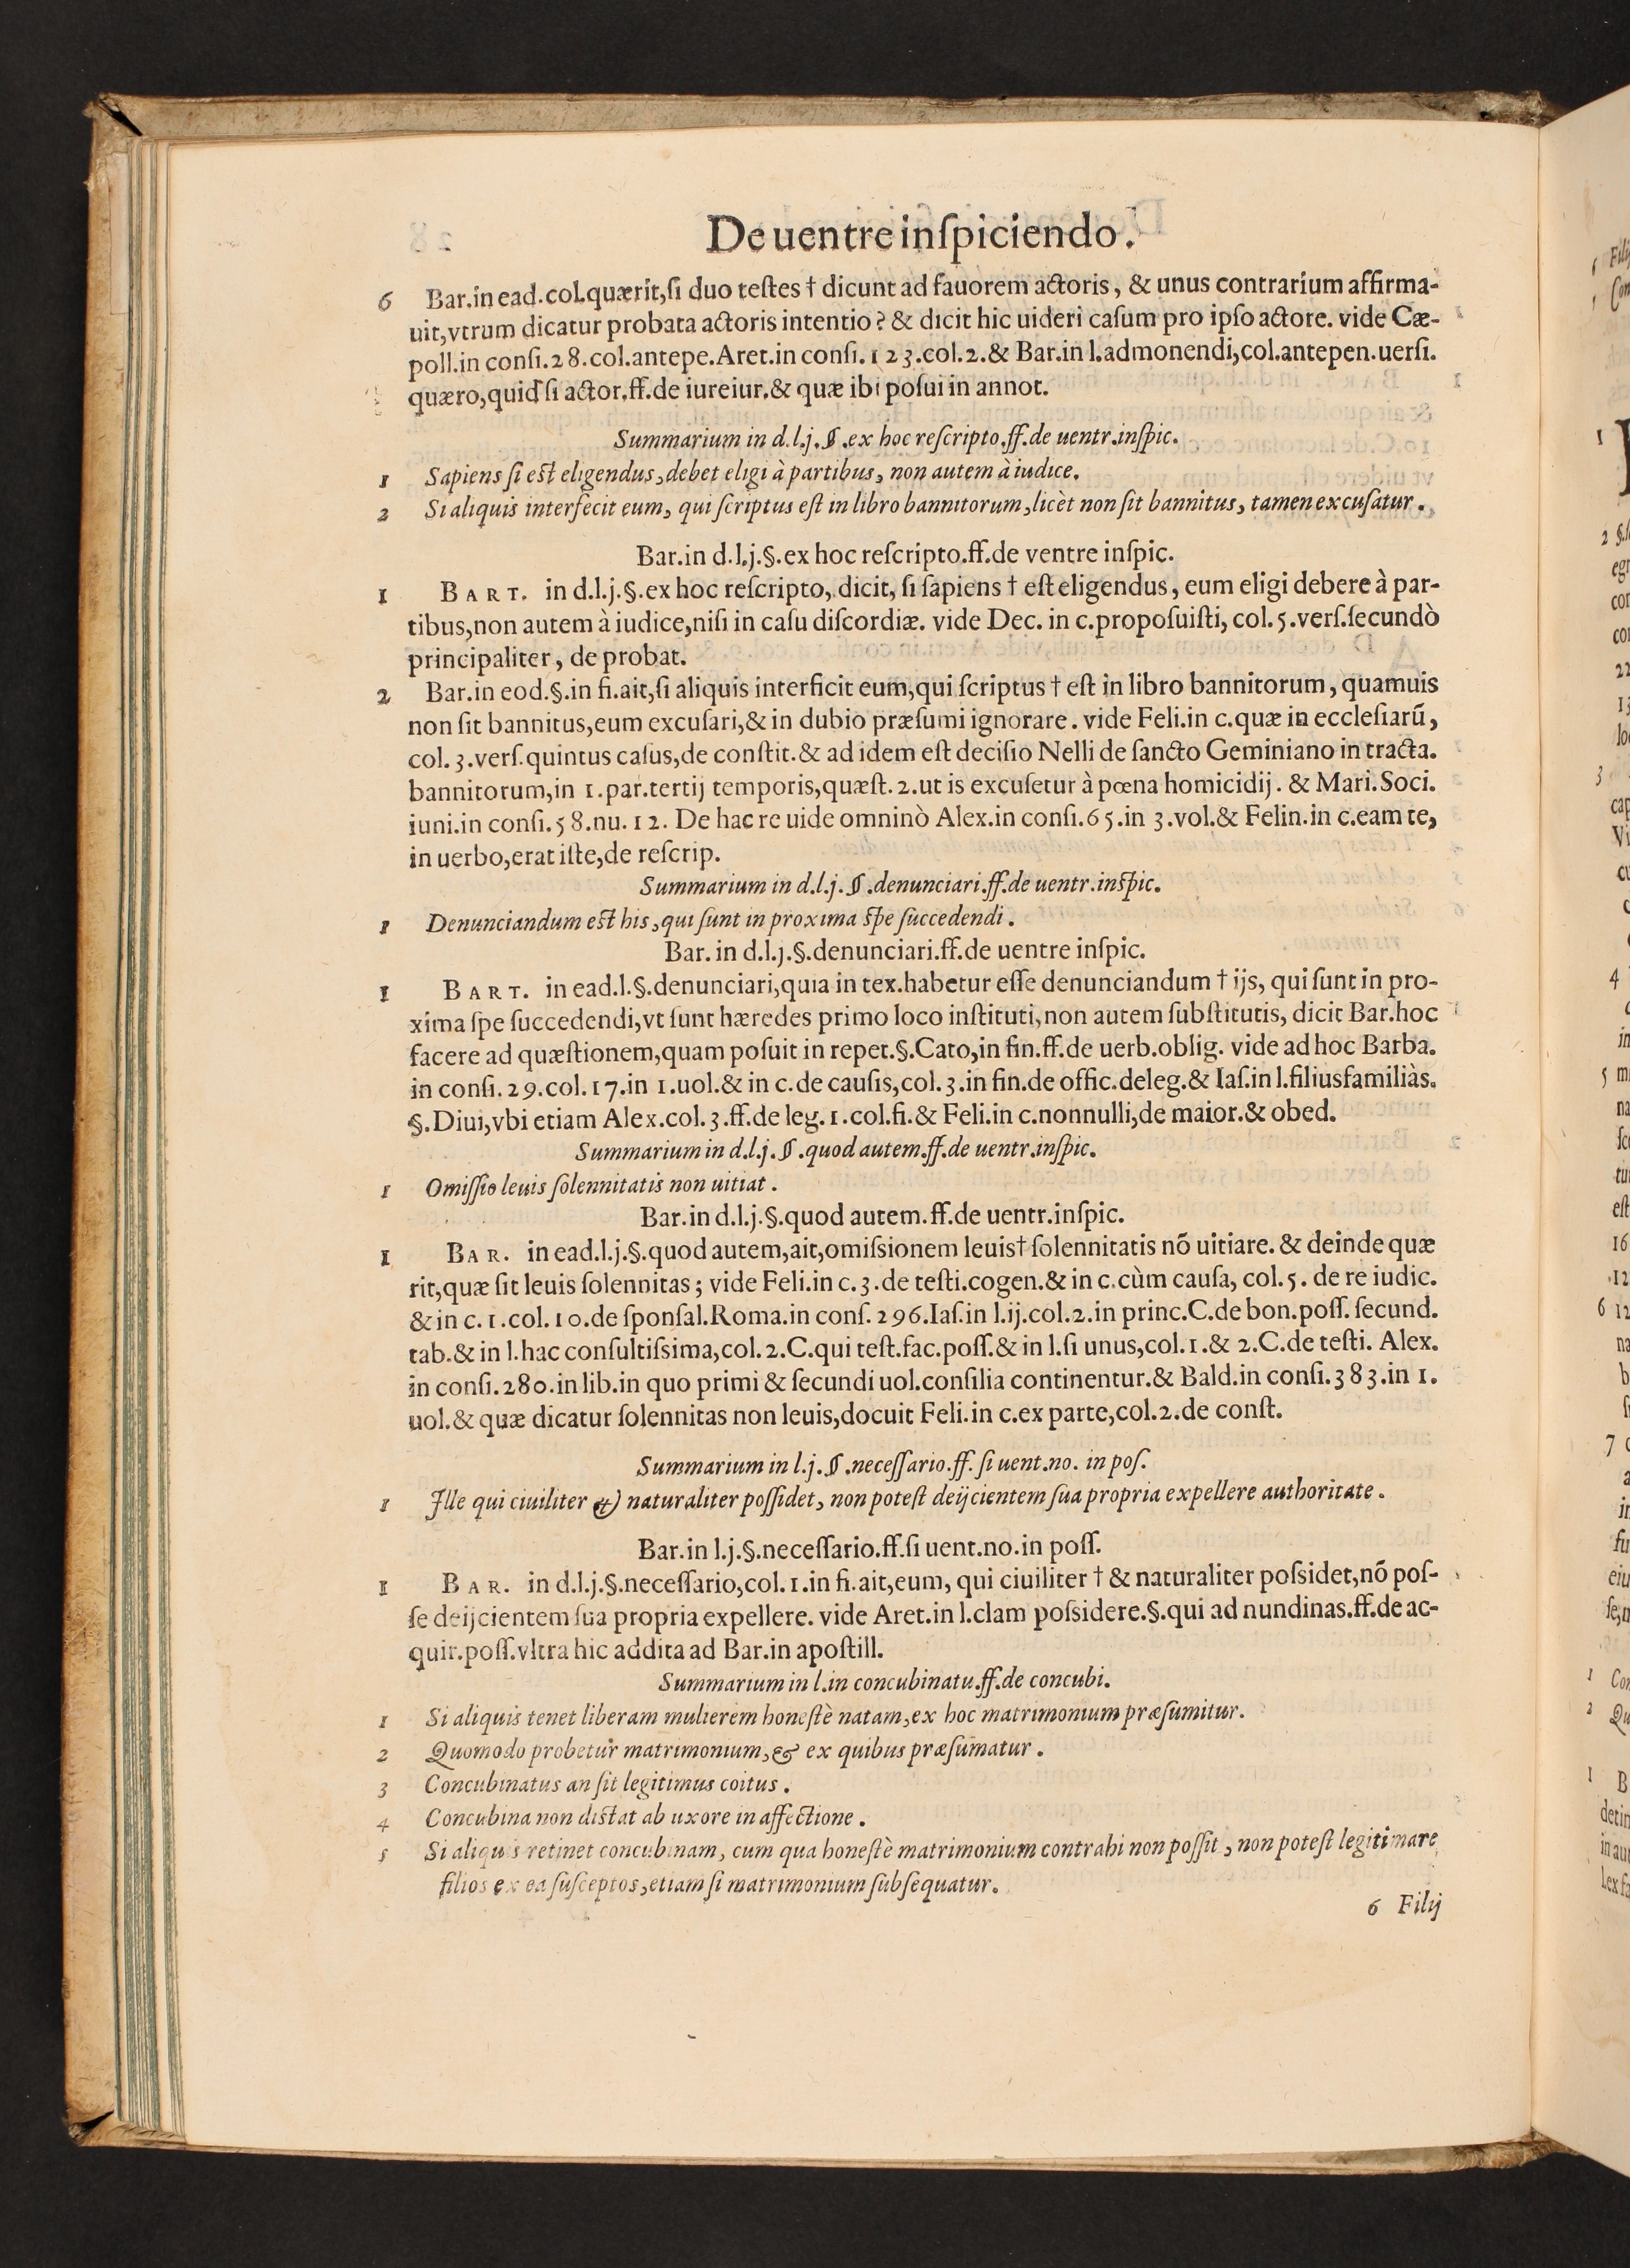 De uentre inſpiciendo.
6 Bar.in ead.col.quærit,ſi duo teſtes † dicunt ad fauorem actoris, & unus contrarium affirma-
uit,vtrum dicatur probata actoris intentio? & dicit hic uideri caſum pro ipſo actore. vide Cæ-
poll.in conſi.28.col.antepe.Aret.in conſi.123.col.2.& Bar.in l.admonendi,col.antepen.uerſi.
quæro,quid ſi actor.ff.de iureiur.& quæ ibi poſui in annot.
Summarium in d.l.j.§.ex hoc reſcripto.ff.de uentr.inſpic.
1 Sapiens ſi eſt eligendus,debet eligi à partibus, non autem à iudice.
2 Si aliquis interfecit eum, qui ſcriptus eſt in libro bannitorum,licèt non ſit bannitus, tamen excuſatur.
Bar.in d.l.j.§.ex hoc reſcripto.ff.de ventre inſpic.
1 BART. in d.l.j.§.ex hoc reſcripto, dicit, ſi ſapiens † eſt eligendus, eum eligi debere à par-
tibus,non autem à iudice,niſi in caſu diſcordiæ. vide Dec. in c.propoſuiſti, col.5.verſ.ſecundò
principaliter, de probat.
2 Bar.in eod.§.in fi.ait,ſi aliquis interficit eum,qui ſcriptus † eſt in libro bannitorum, quamuis
non ſit bannitus,eum excuſari,& in dubio præſumi ignorare. vide Feli.in c.quæ in eccleſiarũ,
col.3.verſ.quintus caſus,de conſtit.& ad idem eſt deciſio Nelli de ſancto Geminiano in tracta.
bannitorum,in 1.par.tertij temporis,quæſt.2.ut is excuſetur à pœna homicidij. & Mari.Soci.
iuni.in conſi.58.nu.12. De hac re uide omninò Alex.in conſi.65.in 3.vol.& Felin.in c.eam te,
in uerbo,erat iſte,de reſcrip.
Summarium in d.l.j.§.denunciari.ff.de uentr.inſpic.
1 Denunciandum eſt his,qui ſunt in proxima ſpe ſuccedendi.
Bar. in d.l.j.§.denunciari.ff.de uentre inſpic.
1 BART. in ead.l.§.denunciari,quia in tex.habetur eſſe denunciandum † ijs, qui ſunt in pro-
xima ſpe ſuccedendi,vt ſunt hæredes primo loco inſtituti,non autem ſubſtitutis, dicit Bar.hoc
facere ad quæſtionem,quam poſuit in repet.§.Cato,in fin.ff.de uerb.oblig. vide ad hoc Barba.
in conſi.29.col.17.in 1.uol.& in c.de cauſis,col.3.in fin.de offic.deleg.& Iaſ.in l.filiusfamiliàs.
§.Diui,vbi etiam Alex.col.3.ff.de leg.1.col.fi.& Feli.in c.nonnulli,de maior.& obed.
Summarium in d.l.j.§.quod autem.ff.de uentr.inſpic.
1 Omiſſio leuis ſolennitatis non uitiat.
Bar.in d.l.j.§.quod autem.ff.de uentr.inſpic.
1 BAR. in ead.l.j.§.quod autem,ait,omiſsionem leuis† ſolennitatis nõ uitiare. & deinde quæ
rit,quæ ſit leuis ſolennitas; vide Feli.in c.3.de teſti.cogen.& in c.cùm cauſa, col.5. de re iudic.
& in c.1.col.10.de ſponſal.Roma.in conſ.296.Iaſ.in l.ij.col.2.in princ.C.de bon.poſſ.ſecund.
tab.& in l.hac conſultiſsima,col.2.C.qui teſt.fac.poſſ.& in l.ſi unus,col.1.& 2.C.de teſti. Alex.
in conſi.280.in lib.in quo primi & ſecundi uol.conſilia continentur.& Bald.in conſi.383.in 1.
uol.& quæ dicatur ſolennitas non leuis,docuit Feli.in c.ex parte,col.2.de conſt.
Summarium in l.j.§.neceſſario.ff.ſi uent.no. in poſ.
1 Ille qui ciuiliter & naturaliter poſſidet, non poteſt deijcientem ſua propria expellere authoritate.
Bar.in l.j.§.neceſſario.ff.ſi uent.no.in poſſ.
1 BAR. in d.l.j.§.neceſſario,col.1.in fi.ait,eum, qui ciuiliter † & naturaliter poſsidet,nõ poſ-
ſe deijcientem ſua propria expellere. vide Aret.in l.clam poſsidere.§.qui ad nundinas.ff.de ac-
quir.poſſ.vltra hic addita ad Bar.in apoſtill.
Summarium in l.in concubinatu.ff.de concubi.
1 Si aliquis tenet liberam mulierem honeſtè natam,ex hoc matrimonium præſumitur.
2 Quomodo probetur matrimonium,& ex quibus præſumatur.
3 Concubinatus an ſit legitimus coitus.
4 Concubina non diſtat ab uxore in affectione.
5 Si aliquis retinet concubinam, cum qua honeſtè matrimonium contrahi non poſſit, non poteſt legitimare
filios ex ea ſuſceptos,etiam ſi matrimonium ſubſequatur.
6 Filij